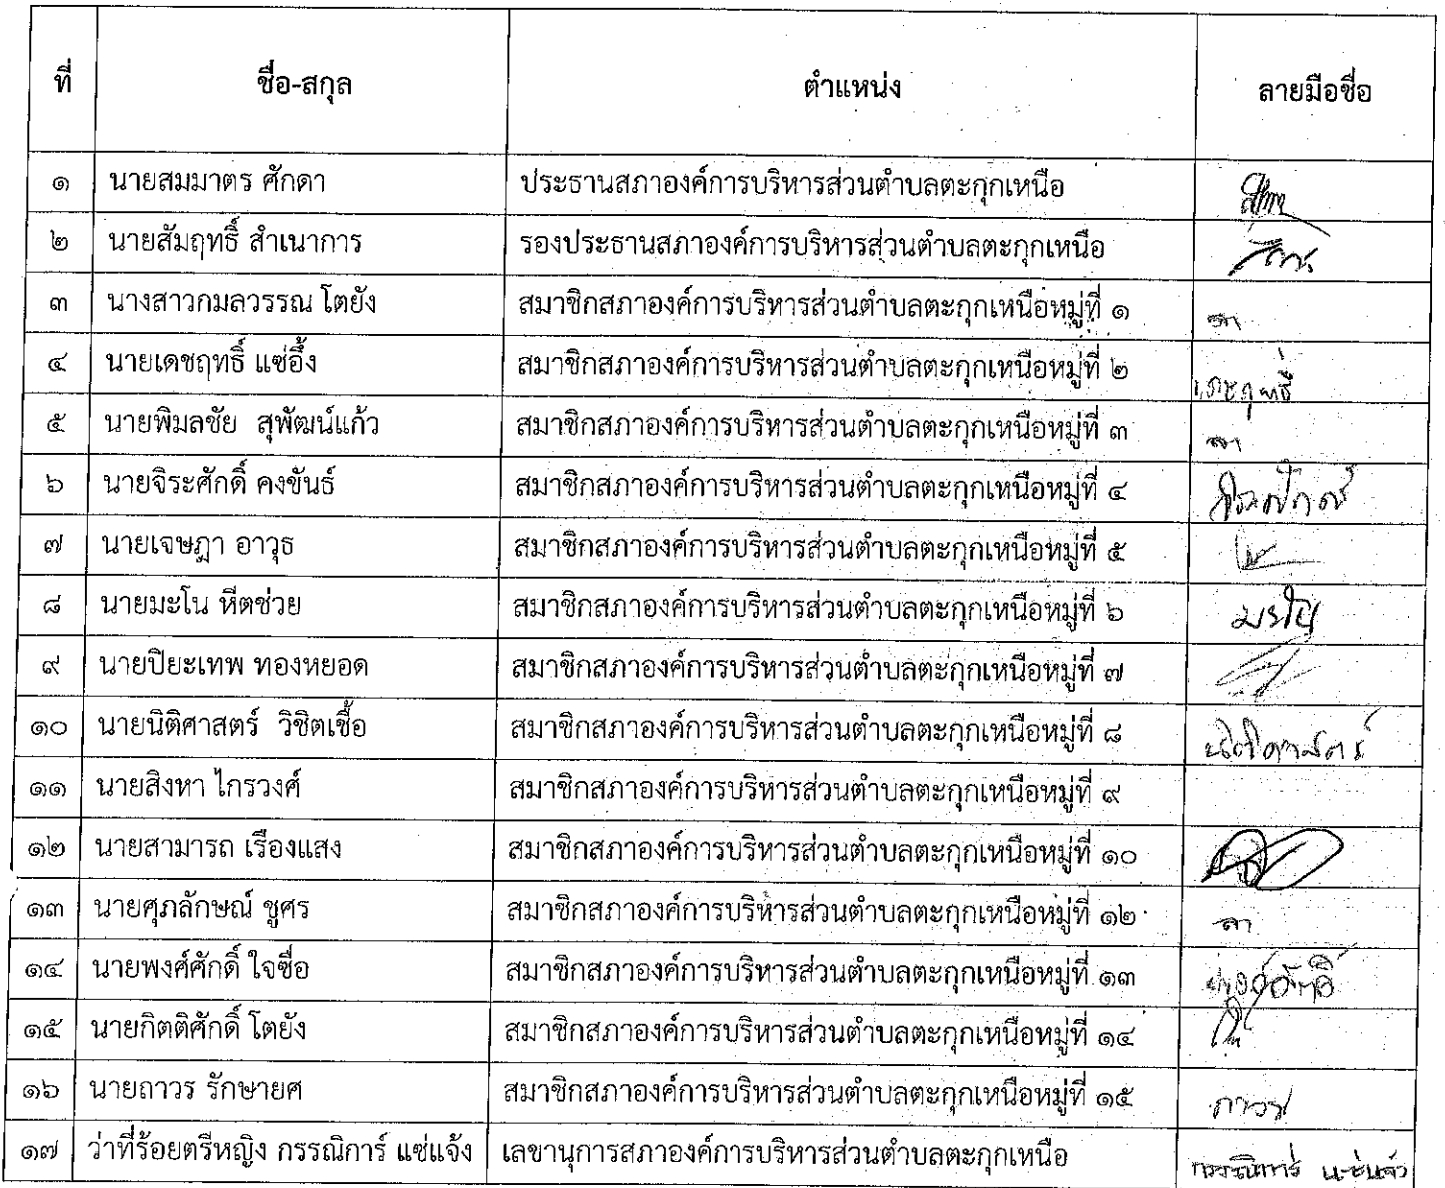 ที่ ชื่อ-สกุล ตำแหน่ง ลายมือชื่อ
๑ นายสมมาตร ศักดา ประธานสภาองค์การบริหารส่วนตำบลตะกุกเหนือ
๒ นายสัมฤทธิ์ สำเนาการ รองประธานสภาองค์การบริหารส่วนตำบลตะกุกเหนือ
๓ นางสาวกมลวรรณ โตยัง สมาชิกสภาองค์การบริหารส่วนตำบลตะกุกเหนือหมู่ที่ ๑ ลา
๔ นายเดชฤทธิ์ แซ่อึ้ง สมาชิกสภาองค์การบริหารส่วนตำบลตะกุกเหนือหมู่ที่ ๒ เดชฤทธิ์
๕ นายพิมลชัย สุพัฒน์แก้ว สมาชิกสภาองค์การบริหารส่วนตำบลตะกุกเหนือหมู่ที่ ๓ ลา
๖ นายจิระศักดิ์ คงขันธ์ สมาชิกสภาองค์การบริหารส่วนตำบลตะกุกเหนือหมู่ที่ ๔
๗ นายเจษฎา อาวุธ สมาชิกสภาองค์การบริหารส่วนตำบลตะกุกเหนือหมู่ที่ ๕
๘ นายมะโน หีตช่วย สมาชิกสภาองค์การบริหารส่วนตำบลตะกุกเหนือหมู่ที่ ๖ มะโน
๙ นายปิยะเทพ ทองหยอด สมาชิกสภาองค์การบริหารส่วนตำบลตะกุกเหนือหมู่ที่ ๗
๑๐ นายนิติศาสตร์ วิชิตเชื้อ สมาชิกสภาองค์การบริหารส่วนตำบลตะกุกเหนือหมู่ที่ ๘ นิติศาสตร์
๑๑ นายสิงหา ไกรวงศ์ สมาชิกสภาองค์การบริหารส่วนตำบลตะกุกเหนือหมู่ที่ ๙
๑๒ นายสามารถ เรืองแสง สมาชิกสภาองค์การบริหารส่วนตำบลตะกุกเหนือหมู่ที่ ๑๐
๑๓ นายศุภลักษณ์ ชูศร สมาชิกสภาองค์การบริหารส่วนตำบลตะกุกเหนือหมู่ที่ ๑๒ ลา
๑๔ นายพงศ์ศักดิ์ ใจซื่อ สมาชิกสภาองค์การบริหารส่วนตำบลตะกุกเหนือหมู่ที่ ๑๓ พงศ์ศักดิ์
๑๕ นายกิตติศักดิ์ โตยัง สมาชิกสภาองค์การบริหารส่วนตำบลตะกุกเหนือหมู่ที่ ๑๔
๑๖ นายถาวร รักษายศ สมาชิกสภาองค์การบริหารส่วนตำบลตะกุกเหนือหมู่ที่ ๑๕ ถาวร
๑๗ ว่าที่ร้อยตรีหญิง กรรณิการ์ แซ่แจ้ง เลขานุการสภาองค์การบริหารส่วนตำบลตะกุกเหนือ กรรณิการ์ แซ่แจ้ง